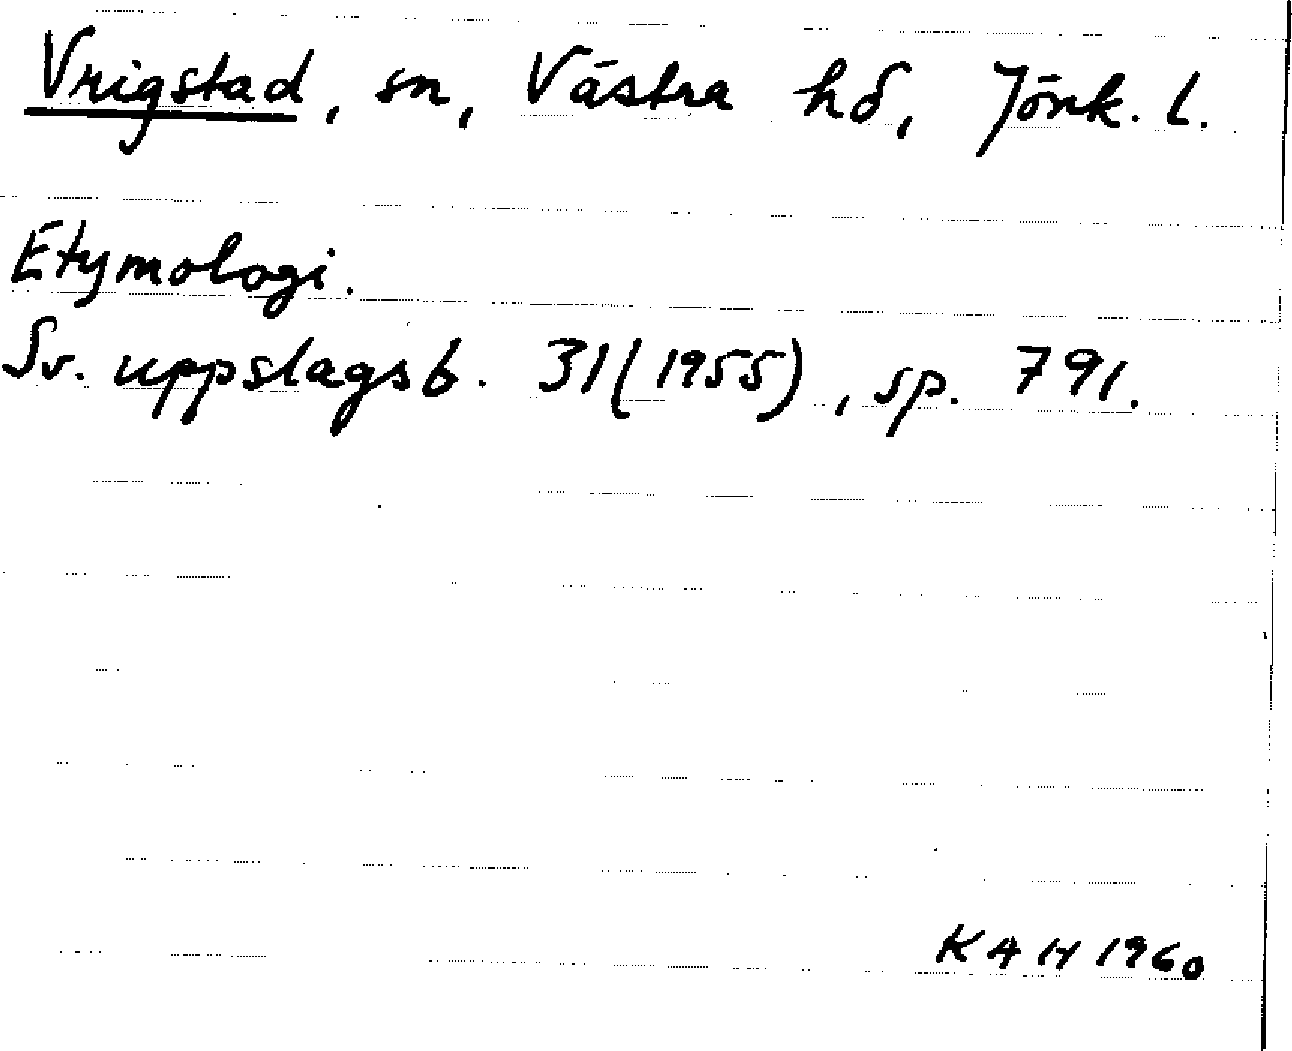 Vrigstad, sn, Västra hd, Jönk. l.
Etymologi.
Sv. uppslagsb. 31(1955), sp. 791.
KAH 1960